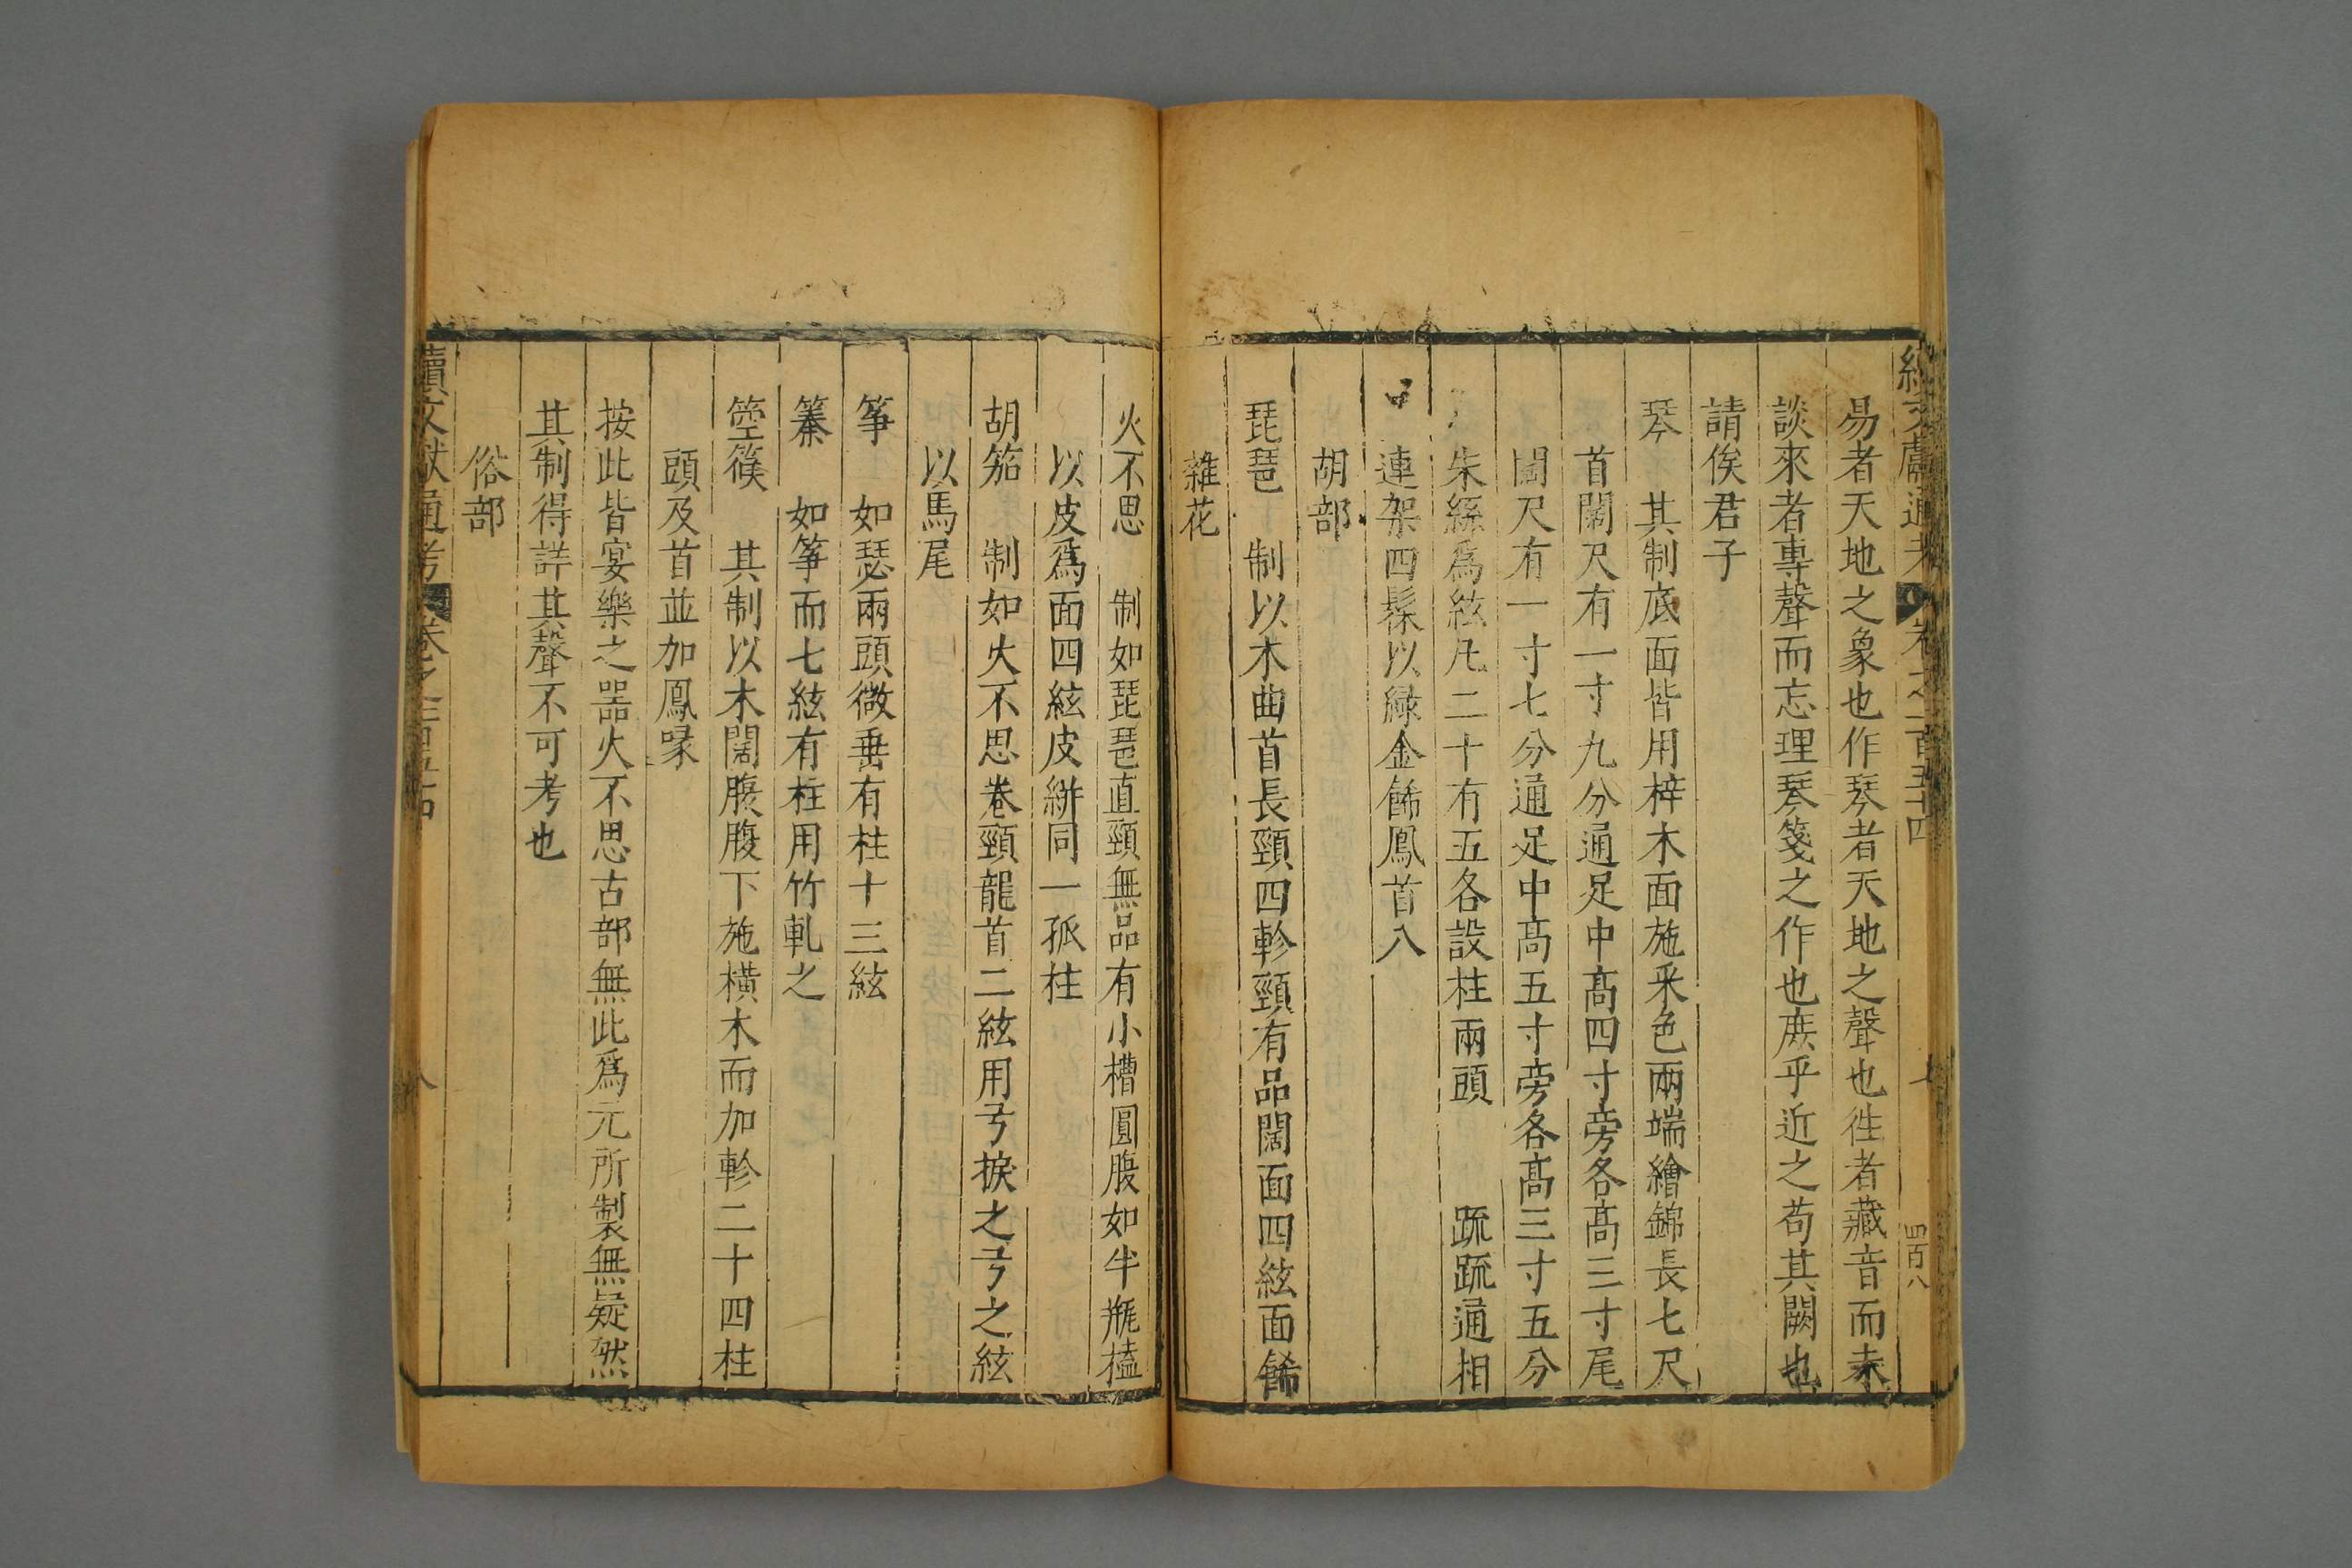 續文獻通考 卷之一百五十四 七 四百八
易者天地之象也作琴者天地之聲也徃者藏音而未
談來者專聲而忘理琴箋之作也庶乎近之苟其闕也
請俟君子
琴 其制底面皆用梓木面施采色兩端繪錦長七尺
首闊尺有一寸九分通足中髙四寸旁各髙三寸尾
闊尺有一寸七分通足中髙五寸旁各髙三寸五分
朱絲為絃凡二十有五各設柱兩頭 䟽䟽通相
連架四髹以緑金餙鳳首八
胡部
琵琶 制以木曲首長頸四軫頸有品闊面四絃面餙
雜花
火不思 制如琵琶直頸無品有小槽圓腹如半瓶榼
以皮爲面四絃皮絣同一孤柱
胡笳 制如火不思卷頸龍首二絃用弓捩之弓之絃
以馬尾
筝 如瑟兩頭微垂有柱十三絃
䈜 如筝而七絃有柱用竹軋之
箜篌 其制以木闊腹腹下施橫木而加軫二十四柱
頭及首並加鳳喙
按此皆宴樂之器火不思古部無此爲元所製無疑然
其制得詳其聲不可考也
俗部
續文獻通考 卷之一百五十四 八